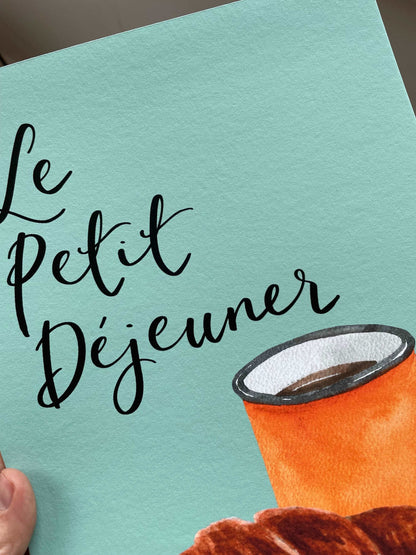 Le
Petit
Déjeuner